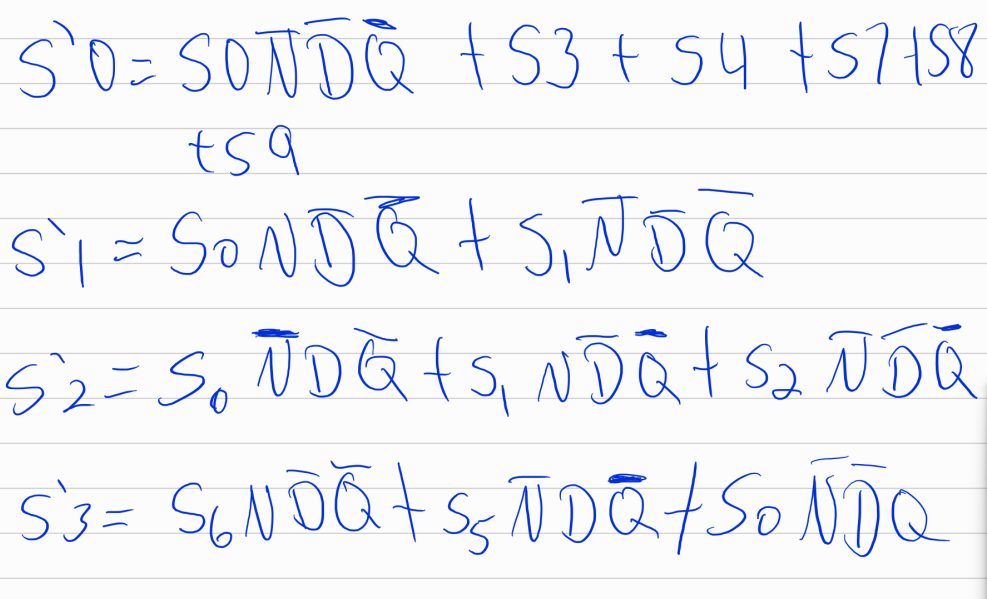 S'0 = S0 N̅ D̅ Q̅ + S3 + S4 + S7 + S8
+ S9
S'1 = S0 N D̅ Q̅ + S1 N̅ D̅ Q̅
S'2 = S0 N̅ D Q̅ + S1 N D̅ Q̅ + S2 N̅ D̅ Q̅
S'3 = S6 N D̅ Q̅ + S5 N̅ D Q̅ + S0 N̅ D̅ Q